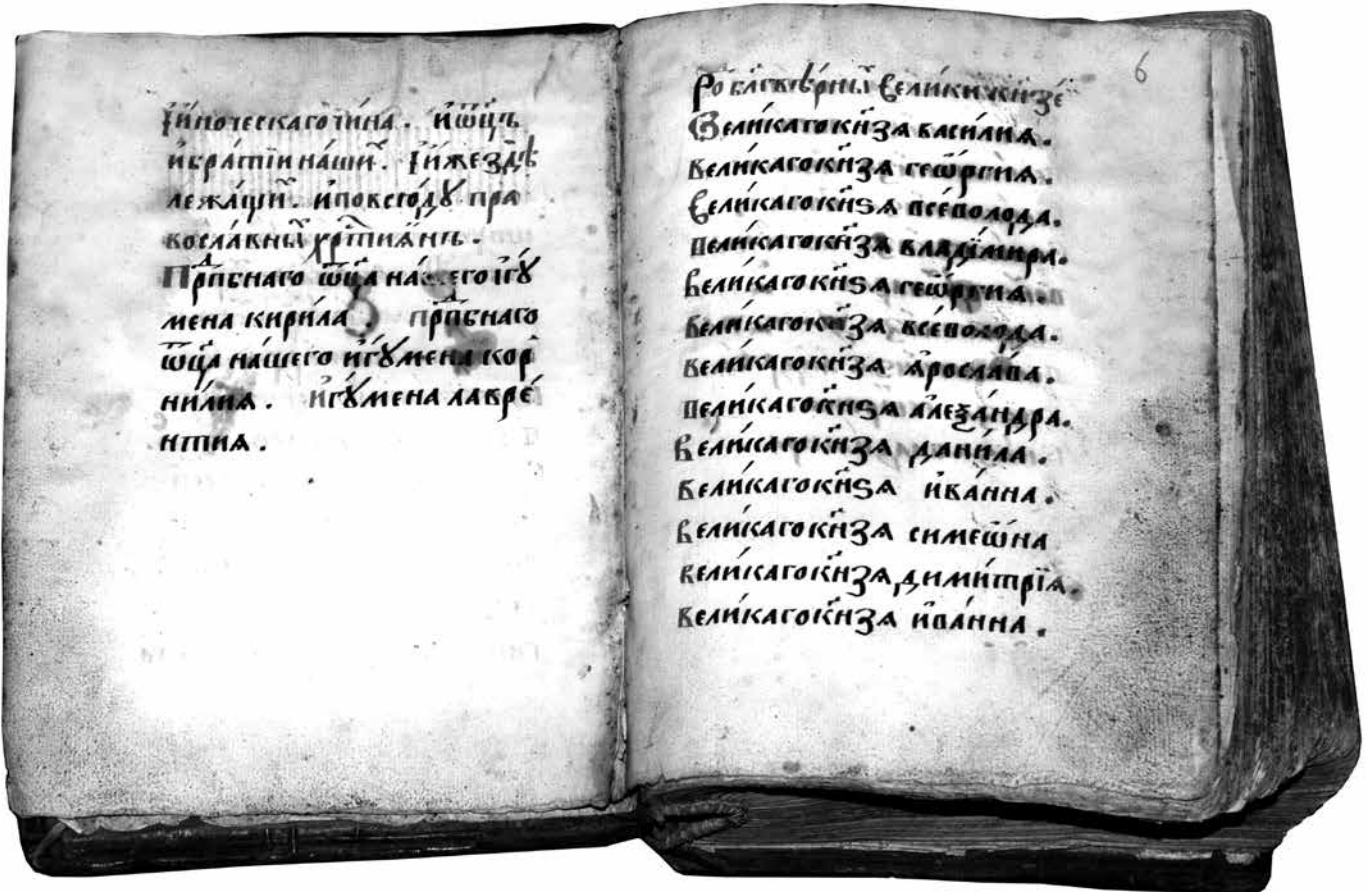 И҆и҆ноческагочи́на . и҆ѿц҃ъ
и҆бра́тїи на́ши х . И҆и҆жезд ѣ
лежа́щи х . и҆повсю́дꙋ пра
восла́вны х хрⷭ҇тиꙗ́нъ .
Прпⷣбнаго ѿц҃а на́шего і҆гꙋ
мена кири́ла . прпⷣбнаго
ѿц҃а на́шего и҆гꙋ́мена кор
ни́лиѧ . и҆гꙋ́мена лавре́
нтиѧ .
6
Ро благовѣ́рны х вели́ки х кн҃зе́й
Вели́кагокн҃зѧ васи́лиѧ .
вели́кагокн҃зѧ геѡ́ргиѧ .
Вели́кагокн҃ѕѧ все́волода .
вели́кагокн҃зѧ влади́мира .
Вели́кагокн҃ѕѧ геѡ́ргиѧ .
вели́кагокн҃зѧ все́волода .
вели́кагокн҃зѧ ꙗ҆росла́ва .
вели́кагокн҃ѕѧ а҆леѯа́ндра .
Вели́кагокн҃зѧ дани́ла .
вели́кагокн҃ѕѧ и҆ва́нна .
вели́кагокн҃зѧ симеѡ́на
вели́кагокн҃зѧ дими́трїѧ .
вели́кагокн҃зѧ и҆ва́нна .